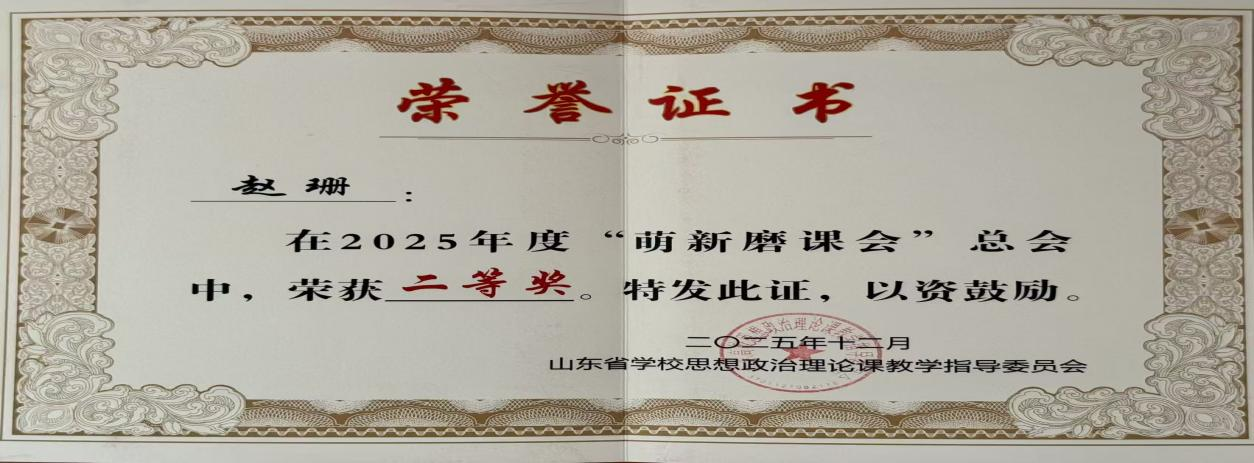 荣誉证书
赵珊：
在2025年度“萌新磨课会”总会
中，荣获二等奖。特发此证，以资鼓励。
二〇二五年十二月
山东省学校思想政治理论课教学指导委员会